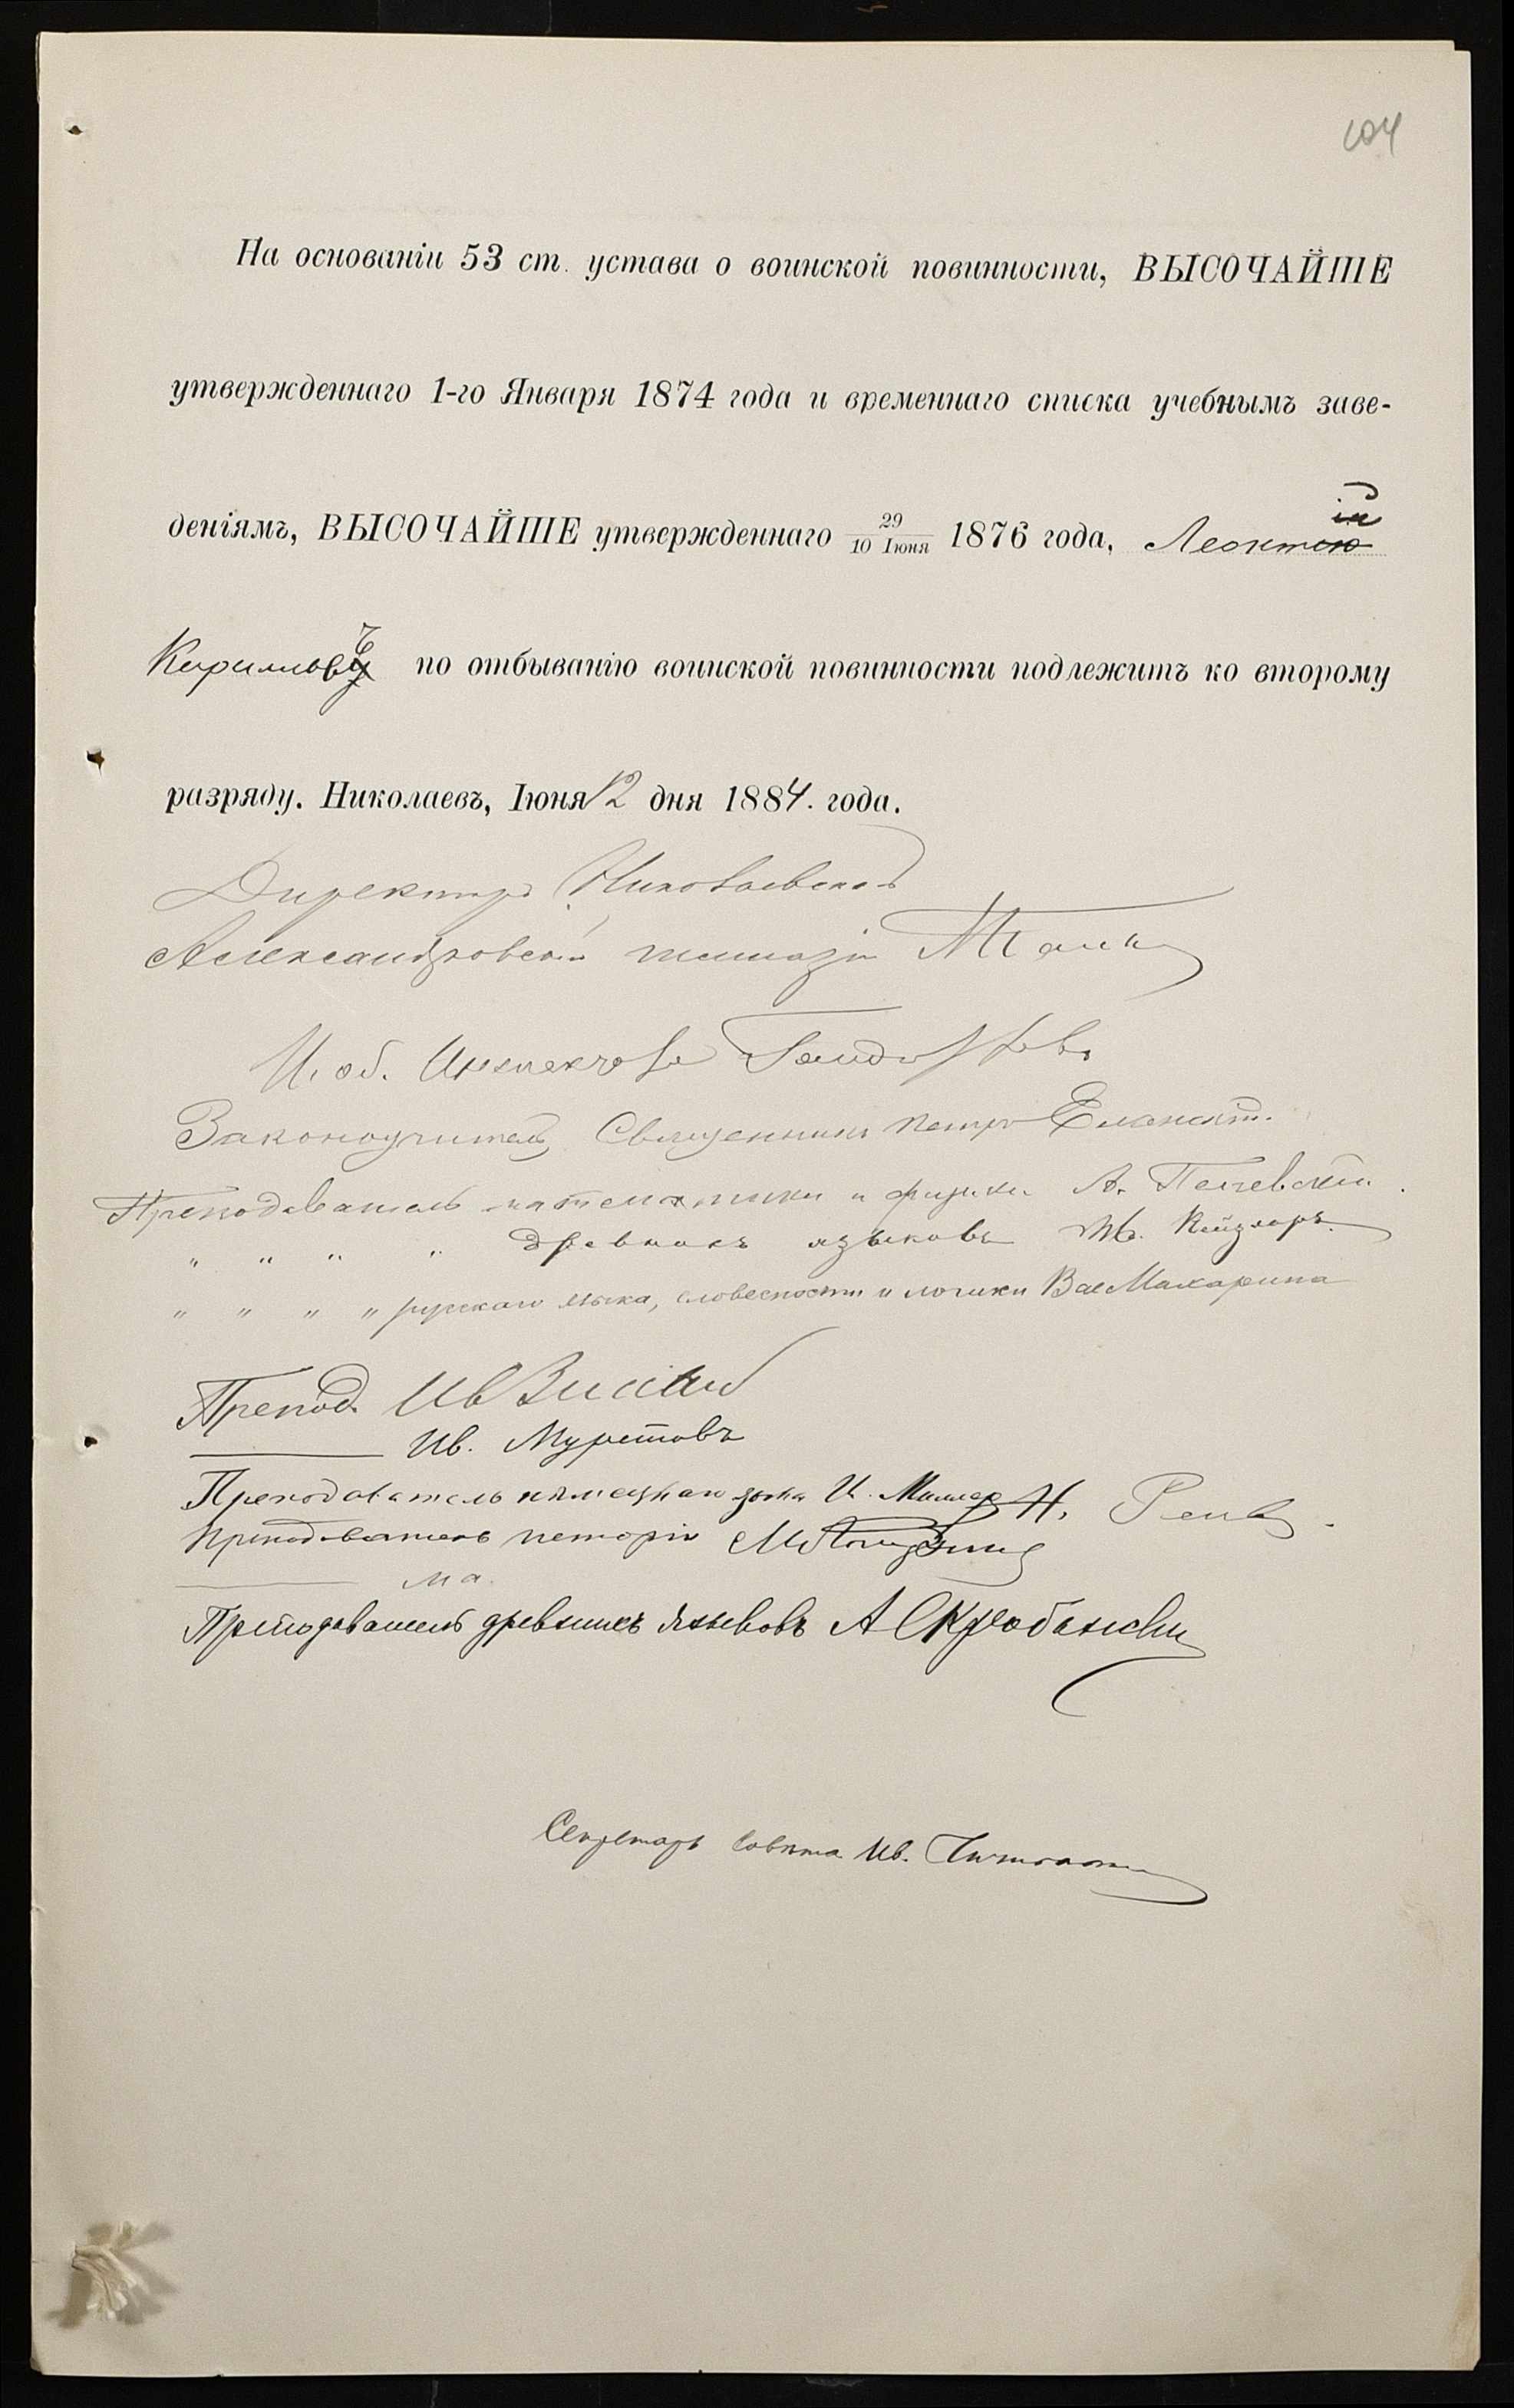 104
На основаніи 53 ст. устава о воинской повинности, ВЫСОЧАЙШЕ
утвержденнаго 1-го Января 1874 года и временнаго списка учебнымъ заве-
деніямъ, ВЫСОЧАЙШЕ утвержденнаго 29/10 Іюня 1876 года, Леонтій
Кириловъ по отбыванію воинской повинности подлежитъ ко второму
разряду. Николаевъ, Іюня 12 дня 1884. года.
Директоръ Николаевской
Александровской гимназіи
И. об. Инспектора
Законоучитель Священникъ Петръ
Преподаватель математики и физики А.
" " " " древнихъ языковъ Кейзларъ.
" " " " русскаго языка, словесности и логики Вас Макарина
Препод. Ив
Ив. Муретовъ
Преподаватель нѣмецкаго языка И. Миллер Н.
Преподаватель исторіи
Преподаватель древнихъ языковъ А
Секретарь Совѣта Ив.